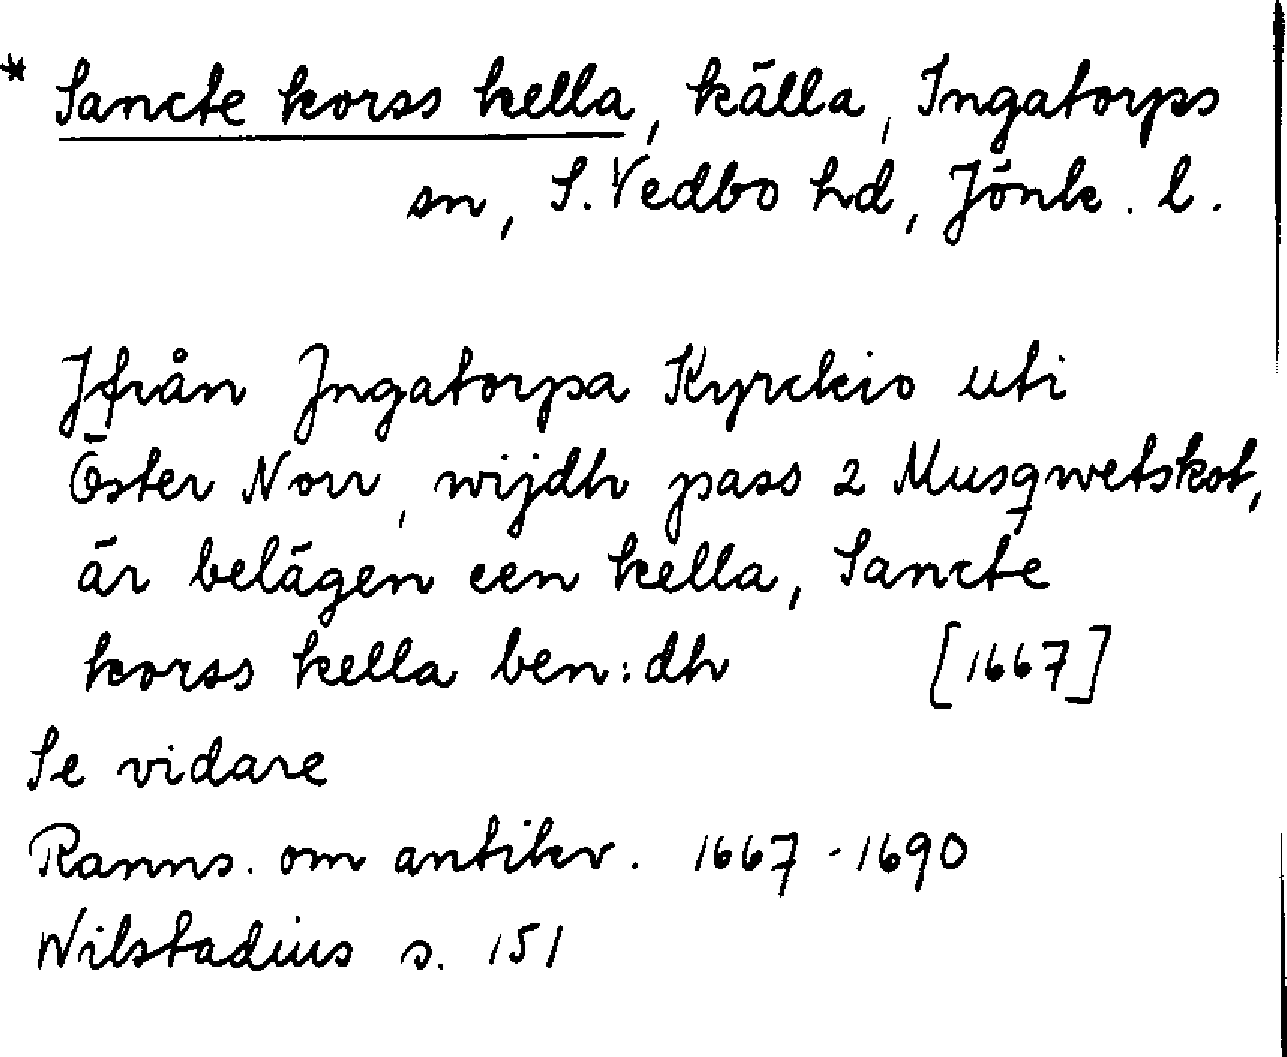 * Sancte korss kella, källa, Ingatorps
sn, S. Vedbo hd, Jönk. l.
Jfrån Jngatorpa Kyrckio uti
Öster Norr, wijdh pass 2 Musqwetskot,
är belägen een kella, Sancte
korss kella ben:dh [1667]
Se vidare
Ranns. om antikv. 1667-1690
Wilstadius s. 151